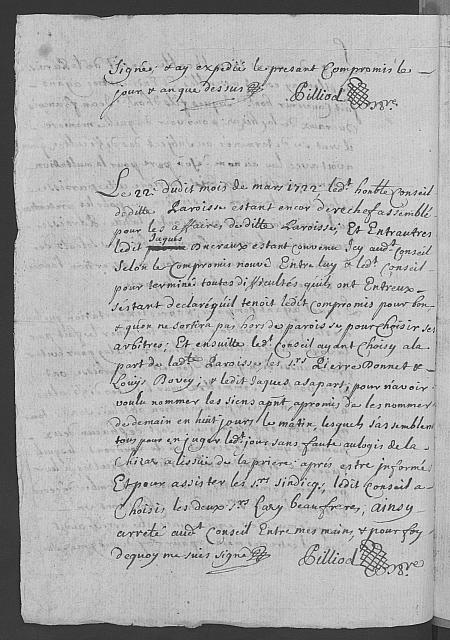 Signés, & ay expedié le presant Compromis le
jour & an que dessus
Pilliod
Le 22. dudit mois de mars 1722 led.t honble Conseil
de ditte Paroisse estant encor derechef assemblé
pour les affaires de ditte Paroisse; Et Entrautres
ledit Jaques Ancraux estant convenu Icy aud.t Conseil
selon le Compromis nouë Entre luy & led.t Conseil
pour terminé toutes difficultés quils ont Entreux
sestant declaré quil tenoit ledit compromis pour bon
& quon ne sortira pas hors de paroisse pour choisir ses
arbitres; Et ensuitte led.t Conseil ayant Choisy a la
part de lad.te Paroisse les s.rs Pierre Bonnet &
Louÿs Bovey; & ledit Jaques a sa part, pour n'avoir
voulu nommer les siens apnt, a promis de les nommer
de demain en huit jours le matin, lesquels sassemblent
tous pour en juger led.t jour sans faute au logis de la
a lissüe de la priere apres estre Informé
Et pour assister les s.rs sindicq, ledit Conseil a
Choisis les deux s.rs beaufreres; ainsy
arreté aud.t Conseil Entre mes mains, & pour foy
dequoy me suis signé
Pilliod